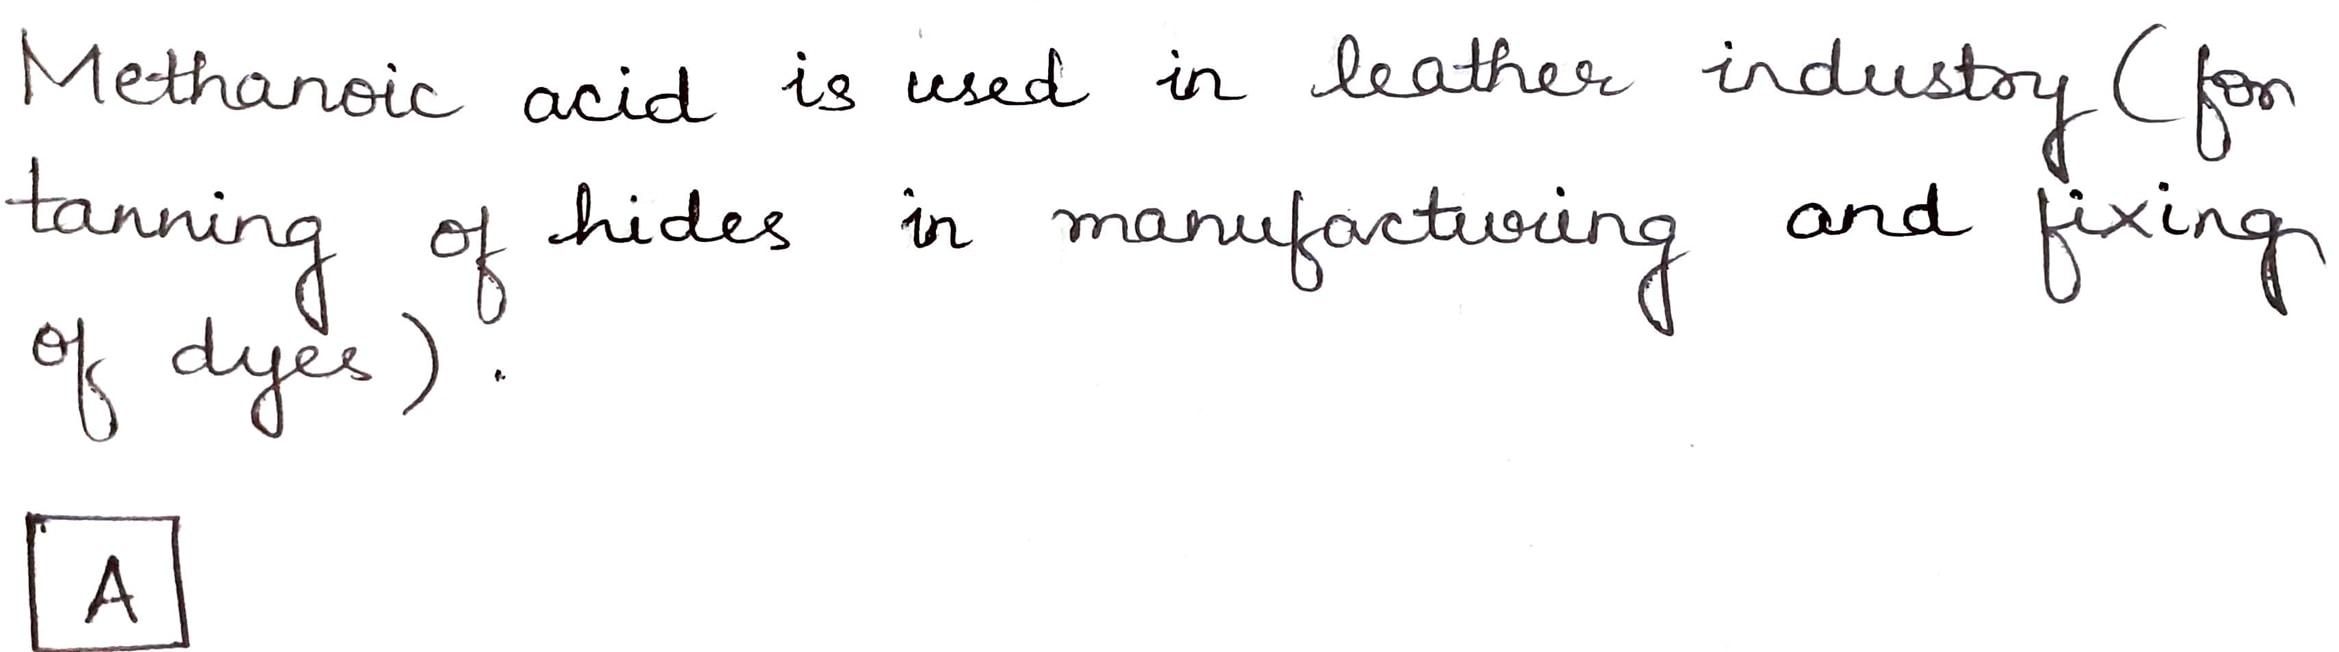 Methanoic acid is used in leather industry (for
tanning of hides in manufacturing and fixing
of dyes).
A